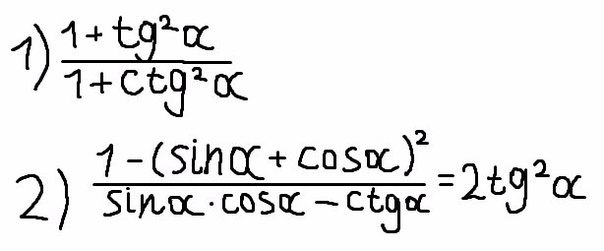 1) (1 + tg²α)/(1 + ctg²α)
2) (1 - (sinα + cosα)²)/(sinα · cosα - ctgα) = 2tg²α